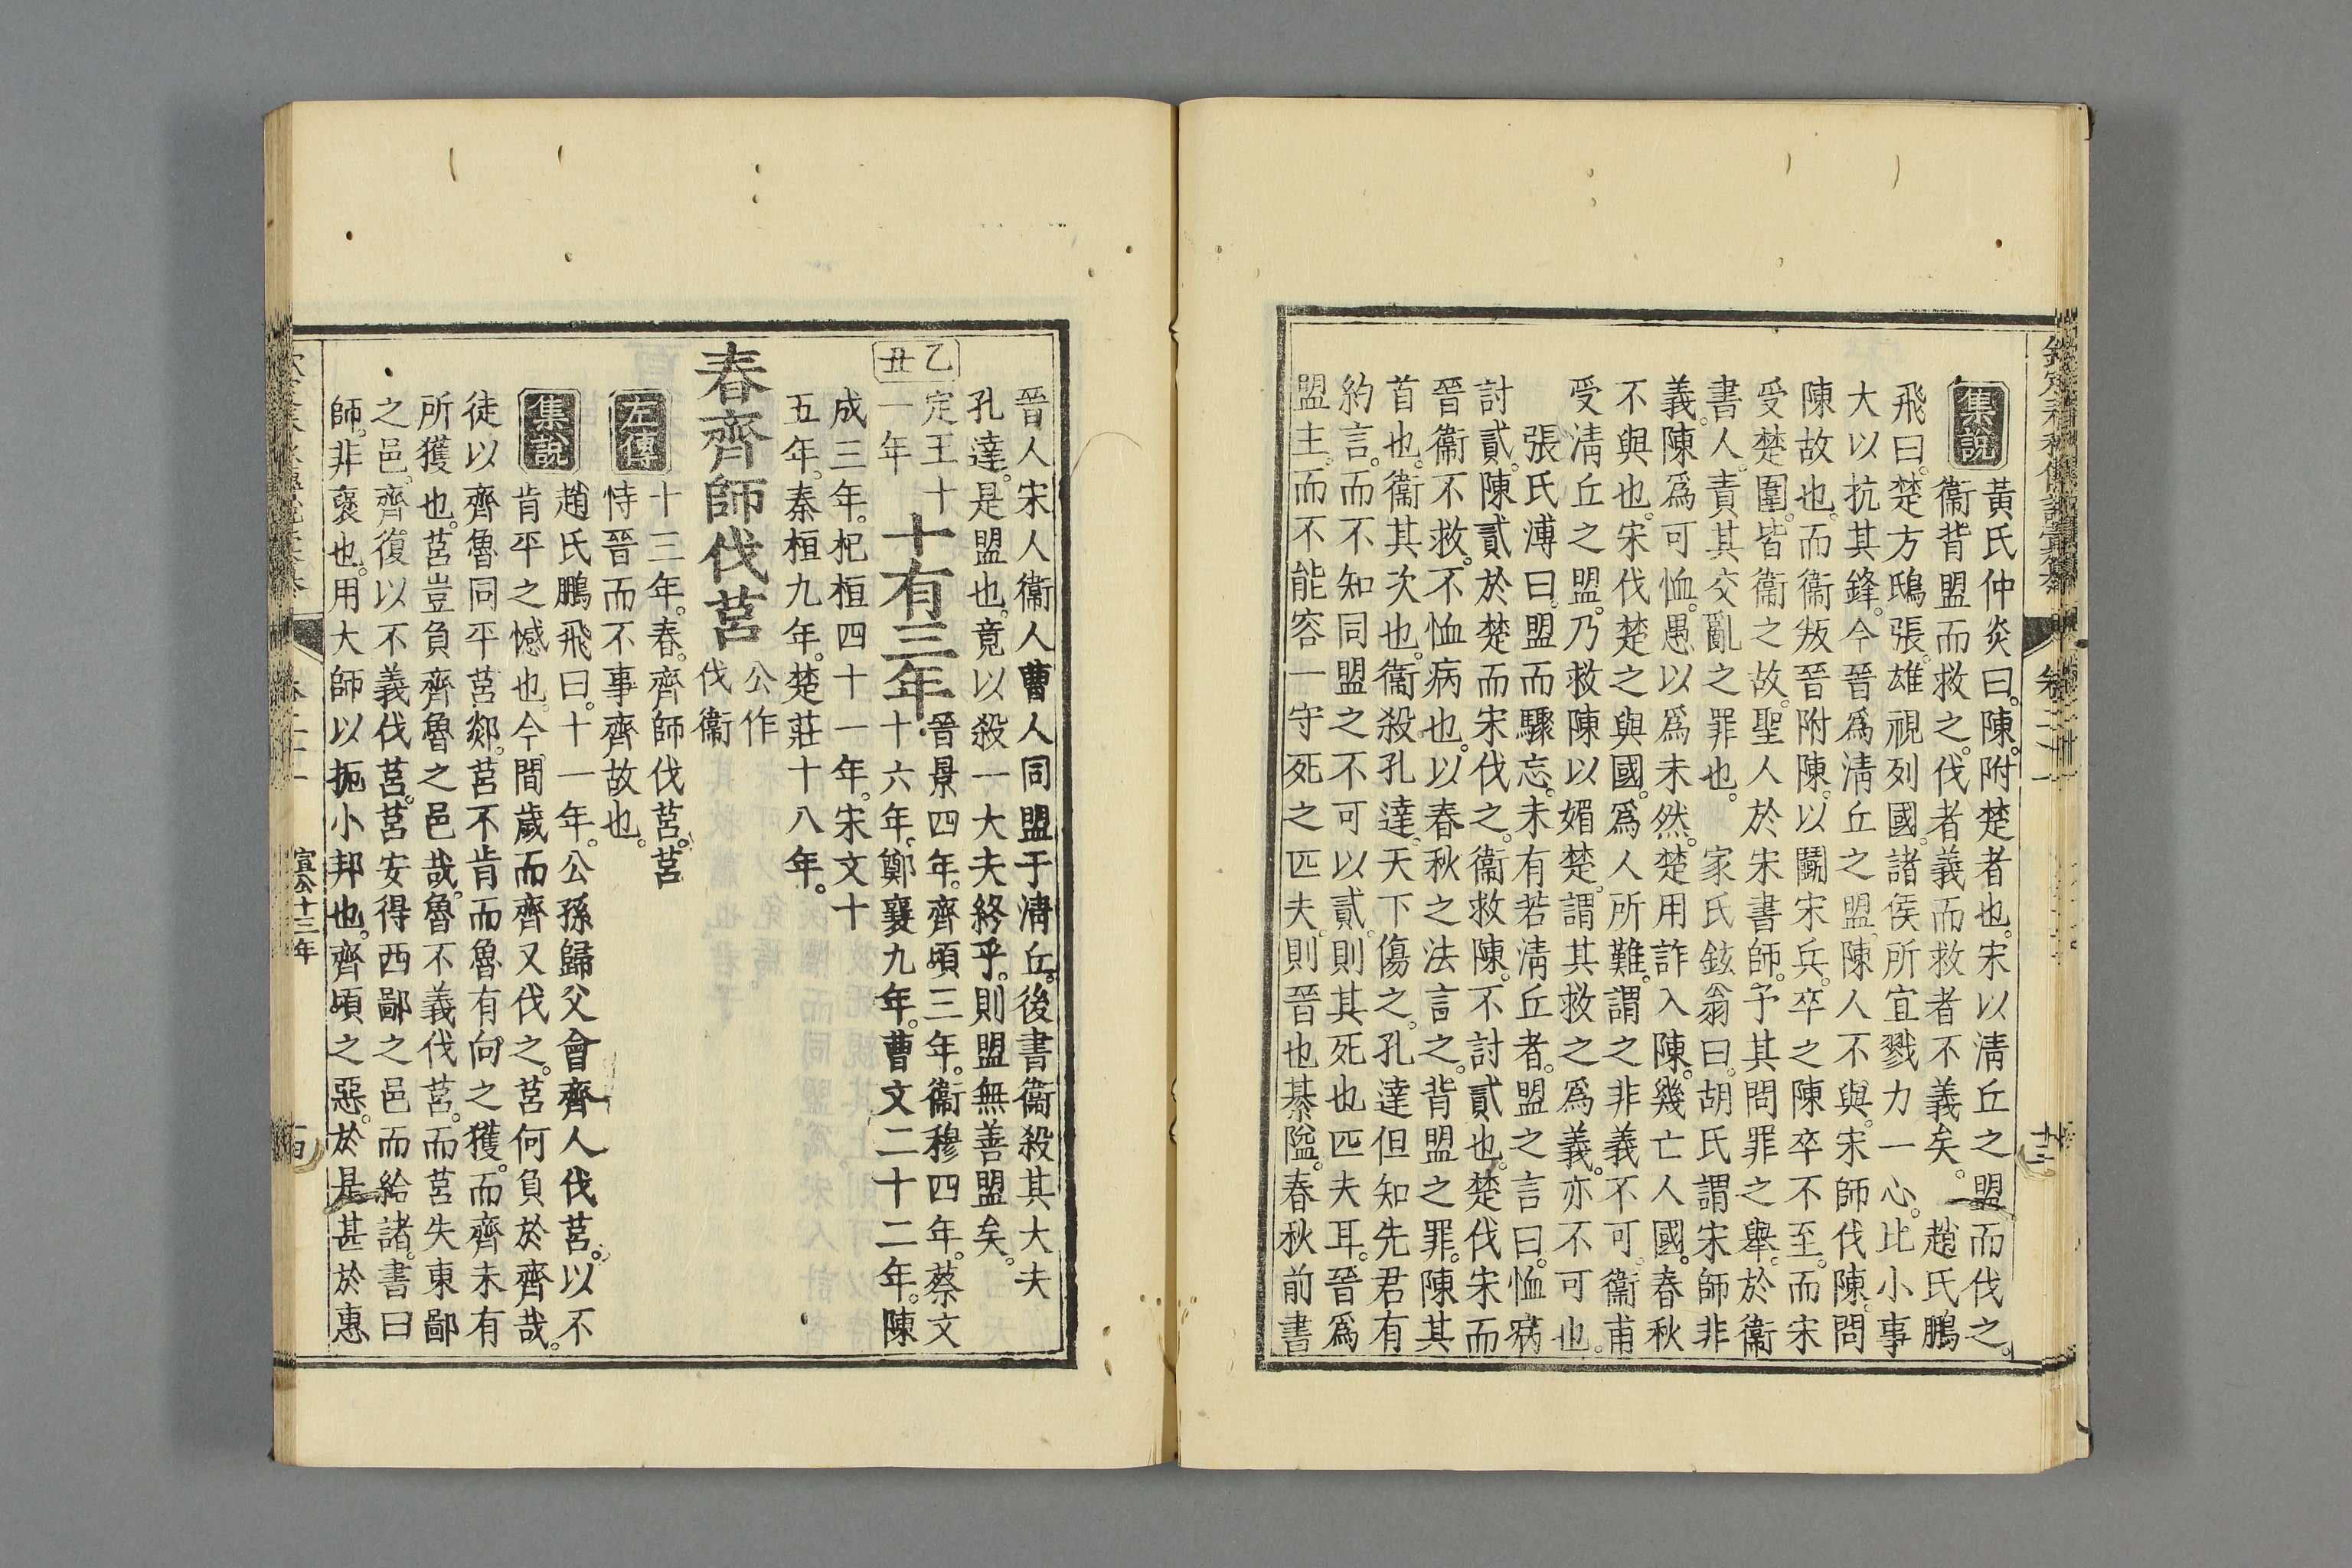 集說
黃氏仲炎曰。陳。附楚者也。宋以淸丘之盟而伐之。
衞背盟而救之。伐者義而救者不義矣。 趙氏鵬
飛曰。楚方鴟張。雄視列國。諸侯所宜戮力一心。比小事
大以抗其鋒。今晉爲淸丘之盟。陳人不與。宋師伐陳。問
陳故也。而衞叛晉附陳。以鬬宋兵。卒之陳卒不至。而宋
受楚圍。皆衞之故。聖人於宋書師。予其問罪之舉。於衞
書人。責其交亂之罪也。 家氏鉉翁曰。胡氏謂宋師非
義。陳爲可恤。愚以爲未然。楚用詐入陳。幾亡人國。春秋
不與也。宋伐楚之與國。爲人所難。謂之非義不可。衞甫
受淸丘之盟。乃救陳以媚楚。謂其救之爲義。亦不可也。
張氏溥曰。盟而驟忘。未有若淸丘者。盟之言曰。恤病
討貳。陳貳於楚而宋伐之。衞救陳。不討貳也。楚伐宋而
晉衞不救。不恤病也。以春秋之法言之。背盟之罪。陳其
首也。衞其次也。衞殺孔達。天下傷之。孔達但知先君有
約言。而不知同盟之不可以貳。則其死也匹夫耳。晉爲
盟主。而不能容一守死之匹夫。則晉也綦隘。春秋前書
晉人宋人衞人曹人同盟于淸丘。後書衞殺其大夫
孔達。是盟也。竟以殺一大夫終乎。則盟無善盟矣。
乙丑
定王十
一年
十有三年
晉景四年。齊頃三年。衞穆四年。蔡文
十六年。鄭襄九年。曹文二十二年。陳
成三年。杞桓四十一年。宋文十
五年。秦桓九年。楚莊十八年。
春齊師伐莒
公作
伐衞
左傳
十三年。春。齊師伐莒。莒
恃晉而不事齊故也。
集說
趙氏鵬飛曰。十一年。公孫歸父會齊人伐莒。以不
肯平之憾也。今間歲而齊又伐之。莒何負於齊哉。
徒以齊魯同平莒郯。莒不肯而魯有向之獲。而齊未有
所獲也。莒豈負齊魯之邑哉。魯不義伐莒。而莒失東鄙
之邑。齊復以不義伐莒。莒安得西鄙之邑而給諸。書曰
師。非襃也。用大師以扼小邦也。齊頃之惡。於是甚於惠
宣公十三年